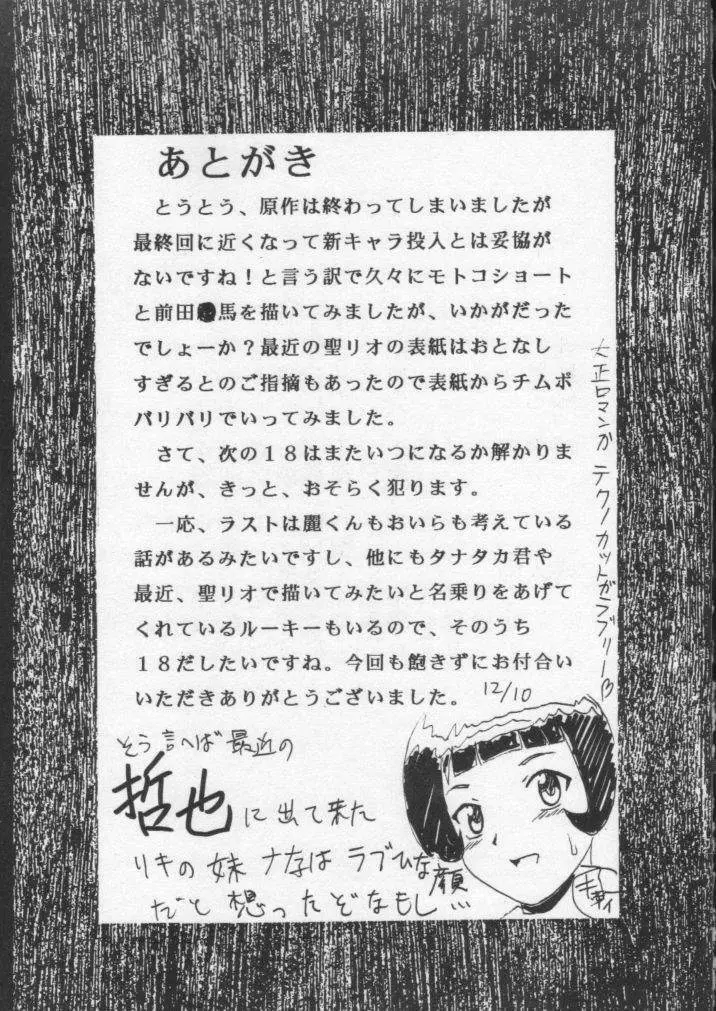 あとがき
とうとう、原作は終わってしまいましたが
最終回に近くなって新キャラ投入とは妥協が
ないですね！と言う訳で久々にモトコショート
と前田●馬を描いてみましたが、いかがだった
でしょーか？最近の聖リオの表紙はおとなし
すぎるとのご指摘もあったので表紙からチムポ
バリバリでいってみました。
さて、次の１８はまたいつになるか解かりま
せんが、きっと、おそらく犯ります。
一応、ラストは麗くんもおいらも考えている
話があるみたいですし、他にもタナタカ君や
最近、聖リオで描いてみたいと名乗りをあげて
くれているルーキーもいるので、そのうち
１８だしたいですね。今回も飽きずにお付合い
いただきありがとうございました。
12/10
大正ロマンか テクノカットがラブリー♡
そう言へば最近の
哲也に出て来た
リキの妹ナナはラブひな顔
だと想ったぞなもし